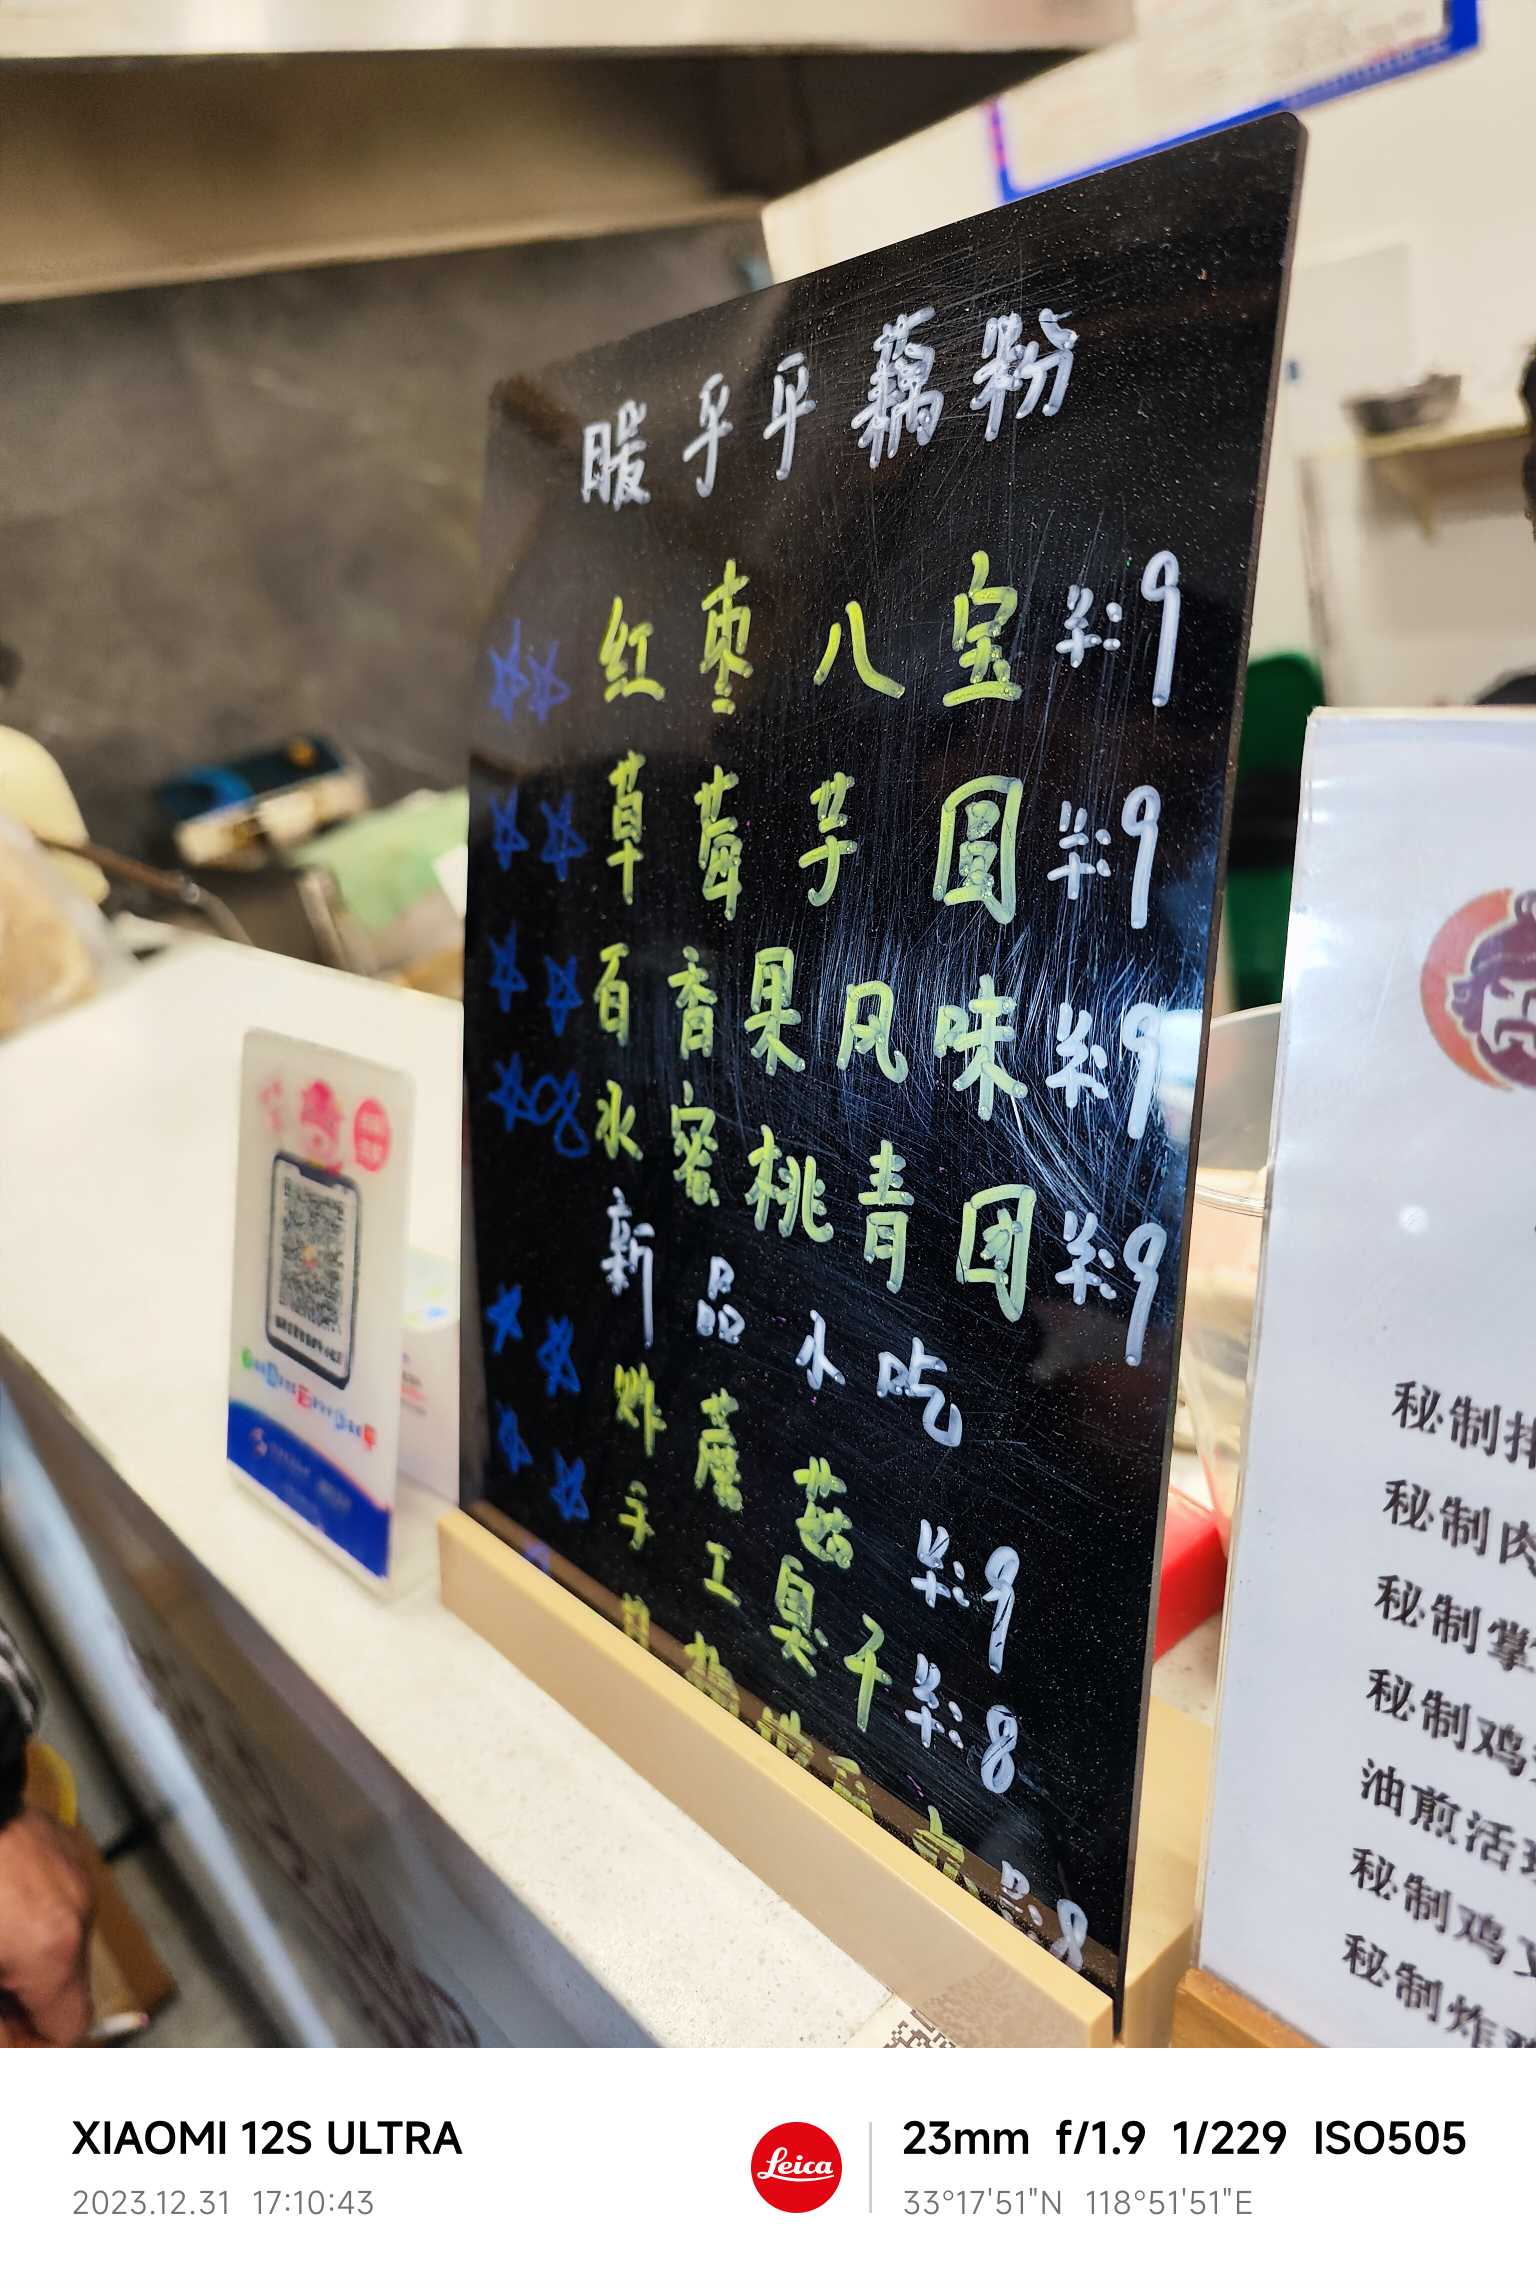 暖乎乎藕粉
红枣八宝 ¥:9
草莓芋圆 ¥:9
百香果风味 ¥:9
水蜜桃青团 ¥:9
新品小吃
炸蘑菇 ¥:9
手工臭干 ¥:8
¥:8
秘制
秘制肉
秘制掌
秘制鸡
油煎活
秘制鸡
秘制炸
XIAOMI 12S ULTRA
2023.12.31 17:10:43
Leica
23mm f/1.9 1/229 ISO505
33°17'51"N 118°51'51"E